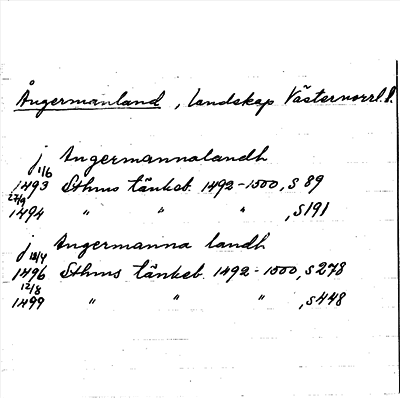 Ångermanland, landskap Västernorrl. l.
j Angermannalandh
1/6
1493 Sthms tänkeb. 1492-1500, s 89
27/9
1494 " " " , s 191
j Angermanna landh
18/4
1496 Sthms tänkeb. 1492-1500, s 278
12/8
1499 " " " , s 448